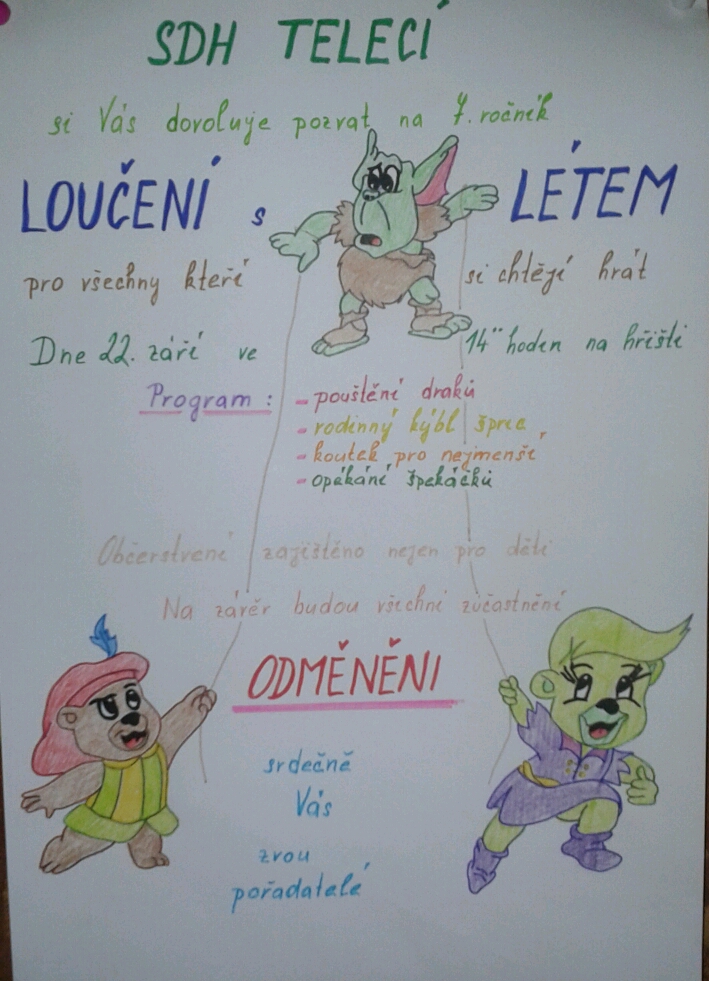 SDH TELECÍ
si Vás dovoluje pozvat na 7. ročník
LOUČENÍ s LÉTEM
pro všechny kteří si chtějí hrát
Dne 22. září ve 14°° hoden na hřišti
Program : - pouštění draků
- rodinný kýbl šprca
- koutek pro nejmenší
- opékání špekáčků
Občerstvení zajištěno nejen pro děti
Na závěr budou všichni zúčastnění
ODMĚNĚNI
srdečně
Vás
zvou
pořadatelé